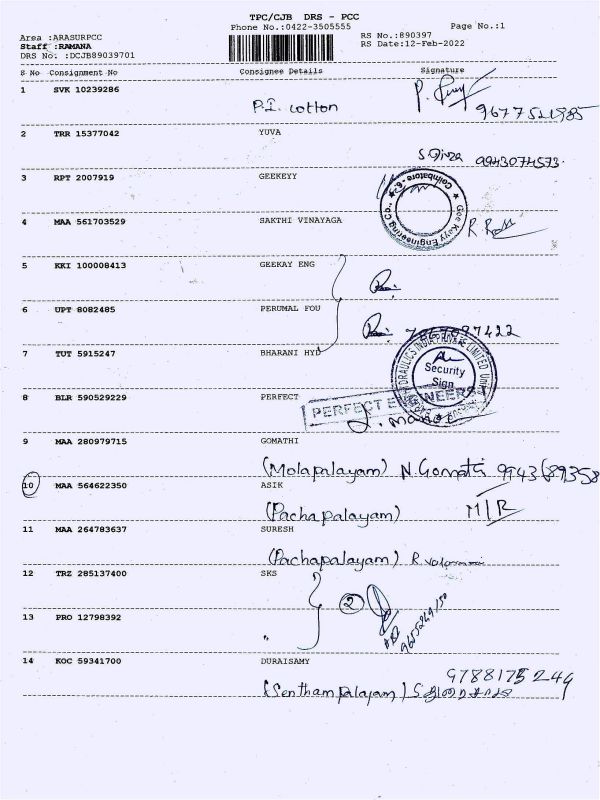 TPC/CJB DRS - PCC
Phone No.:0422-3505555
Page No.:1
Area :ARASURPCC
Staff :RAMANA
DRS No. :DCJB89039701
RS No.:890397
RS Date:12-Feb-2022
S No Consignment No Consignee Details Signature
1 SVK 10239286
P.I. cotton
2 TRR 15377042 YUVA
9943074573.
3 RPT 2007919 GEEKEYY
Coimbatore - 6.
Gee Kayy Engineering Co.,
4 MAA 561703529 SAKTHI VINAYAGA
5 KKI 100008413 GEEKAY ENG
6 UPT 8082485 PERUMAL FOU
7 TUT 5915247 BHARANI HYD
Security
Sign
8 BLR 590529229 PERFECT
PERFECT ENGINEERS
9 MAA 280979715 GOMATHI
(Molapalayam) N. Gomathi
10 MAA 564622350 ASIK
(Pachapalayam) M/R
11 MAA 264783637 SURESH
(Pachapalayam)
12 TRZ 285137400 SKS
2
13 PRO 12798392
"
14 KOC 59341700 DURAISAMY
(Senthampalayam)